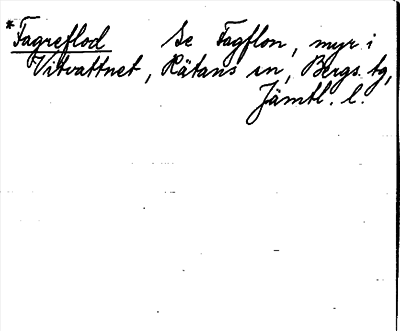 *Fagreflod Se Fagflon, myr i
Vitvattnet, Rätans sn, Bergs tg,
Jämtl. l.